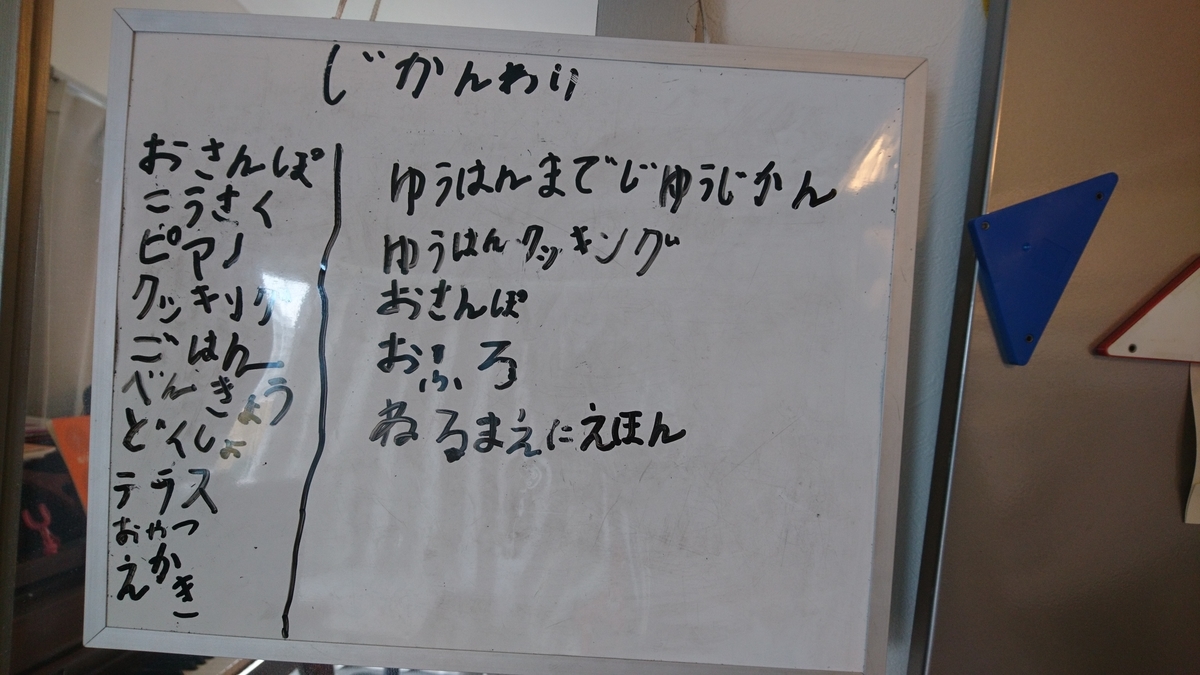 じかんわり
おさんぽ
こうさく
ピアノ
クッキング
ごはん
べんきょう
どくしょ
テラス
おやつ
えかき
ゆうはんまでじゆうじかん
ゆうはんクッキング
おさんぽ
おふろ
ねるまえにえほん